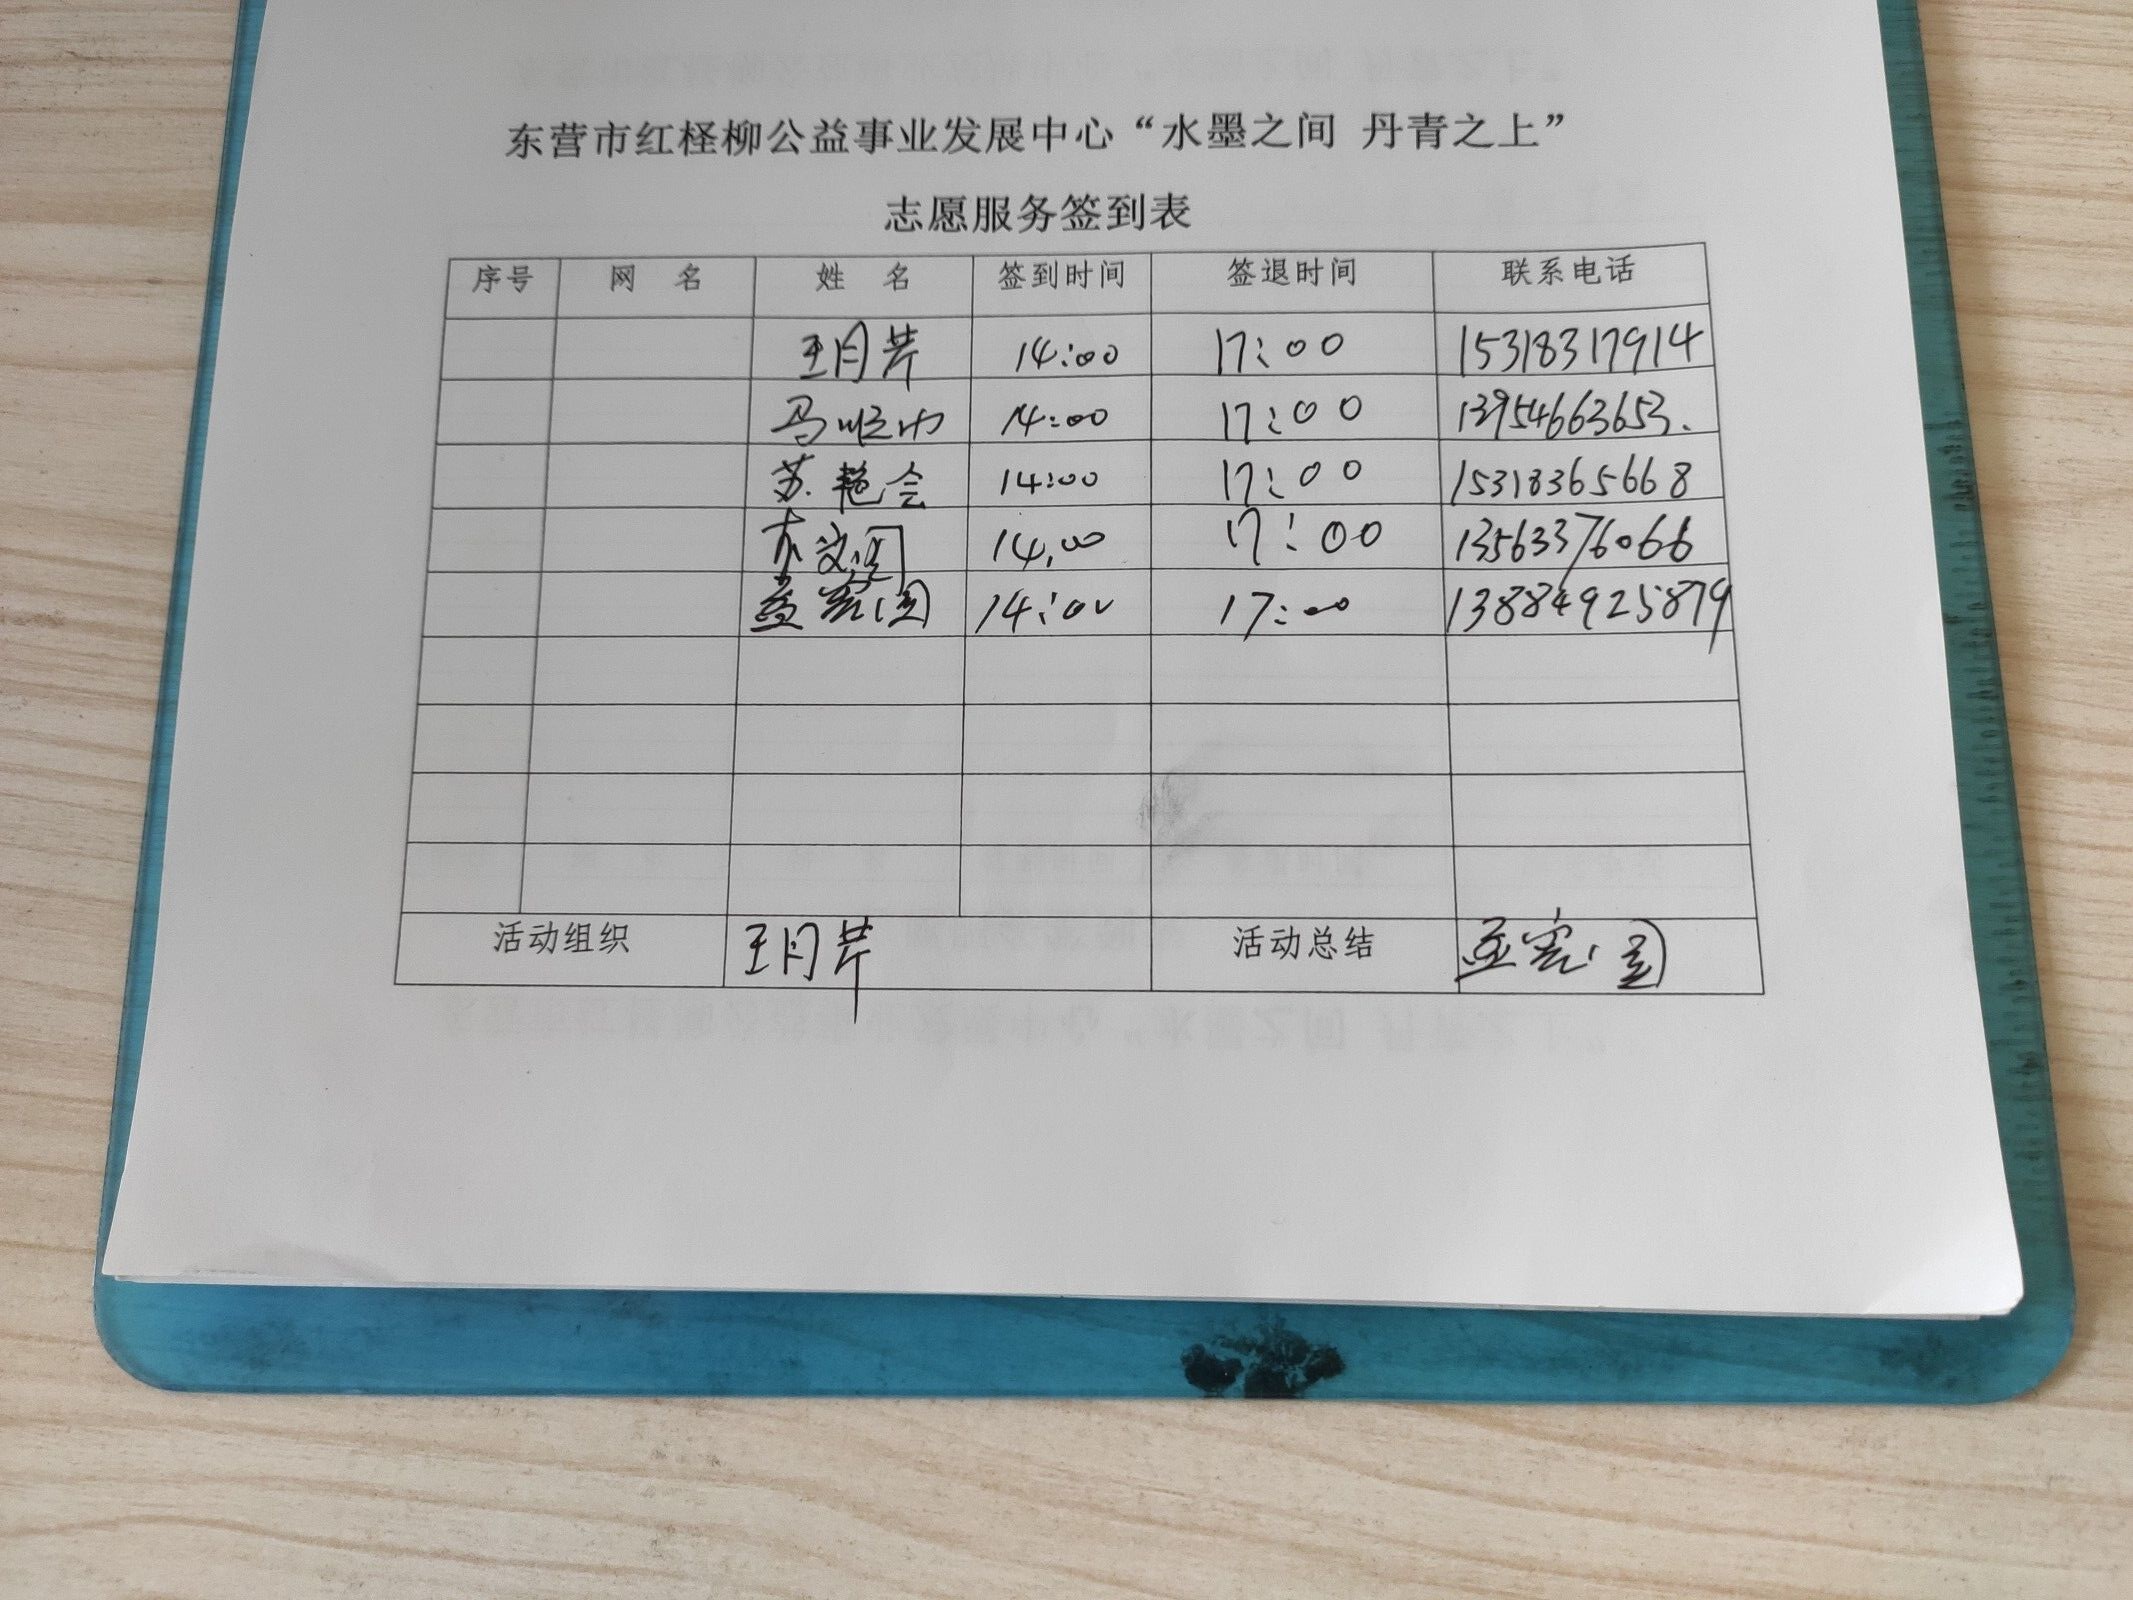 东营市红柽柳公益事业发展中心“水墨之间 丹青之上”
志愿服务签到表
序号 网 名 姓 名 签到时间 签退时间 联系电话
王月芹 14:00 17:00 15318317914
马 14:00 17:00 13954663653.
苏艳会 14:00 17:00 15318365668
14:00 17:00 13563376066
14:00 17:00 13884925879
活动组织 王月芹 活动总结